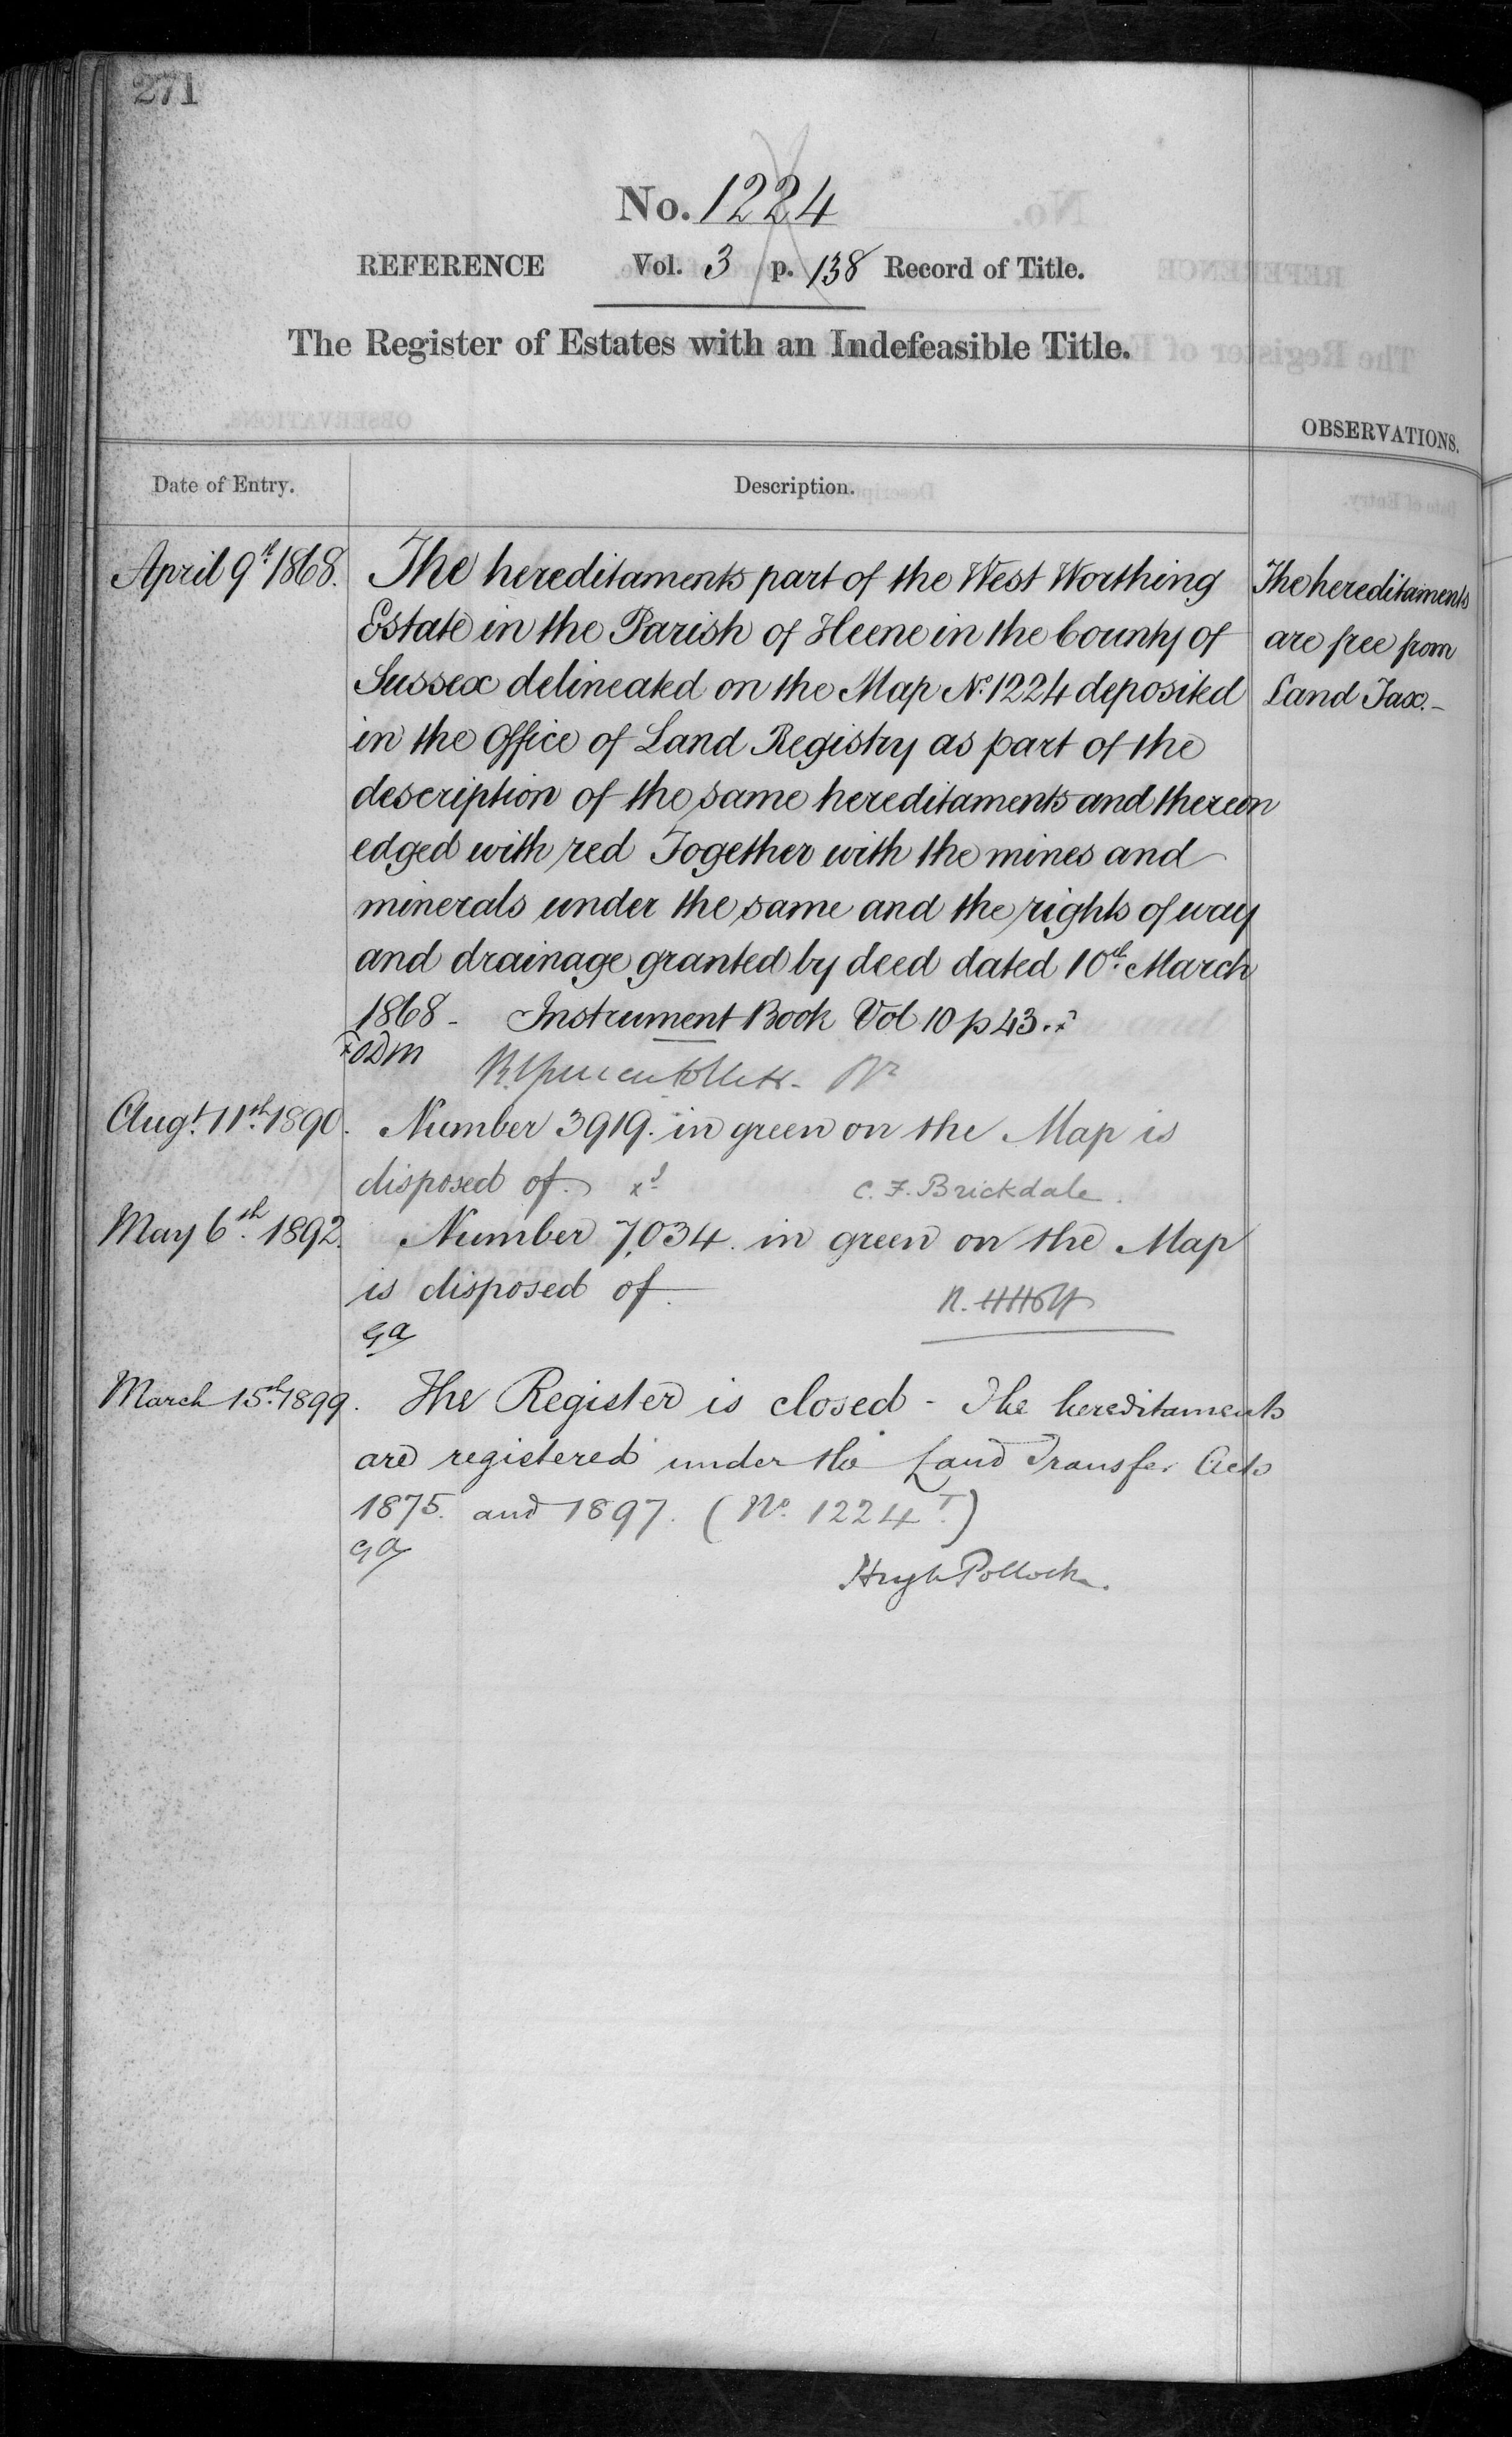 271
No. 1224
REFERENCE Vol. 3 p. 138 Record of Title.
The Register of Estates with an Indefeasible Title.
OBSERVATIONS.
Date of Entry.
Description.
April 9th 1868.
The hereditaments part of the West Worthing
Estate in the Parish of Heene in the County of
Sussex delineated on the Map No. 1224 deposited
in the Office of Land Registry as part of the
description of the same hereditaments and thereon
edged with red Together with the mines and
minerals under the same and the rights of way
and drainage granted by deed dated 10th March
1868 - Instrument Book Vol 10 p 43.
The hereditaments
are free from
Land Tax.-
Augt. 11th 1890.
Number 3919. in green on the Map is
disposed of. C. F. Brickdale.
May 6th 1892.
Number 7,034. in green on the Map
is disposed of.
March 15th 1899.
The Register is closed - The hereditaments
are registered under the Land Transfer Acts
1875. and 1897. (No. 1224 T.)
Hugh Pollock.